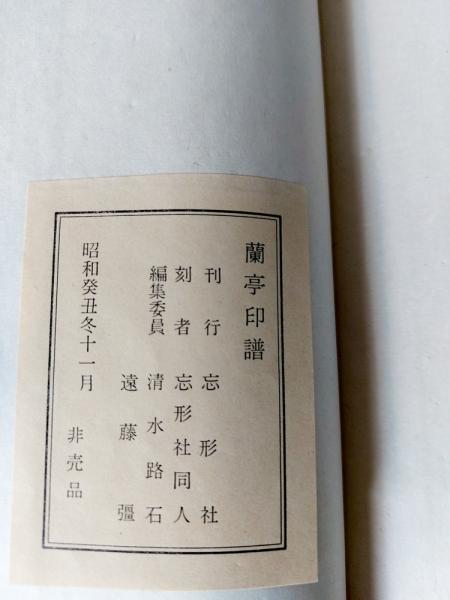 蘭亭印譜
刊行 忘形社
刻者 忘形社同人
編集委員 清水路石
遠藤彊
昭和癸丑冬十一月 非売品